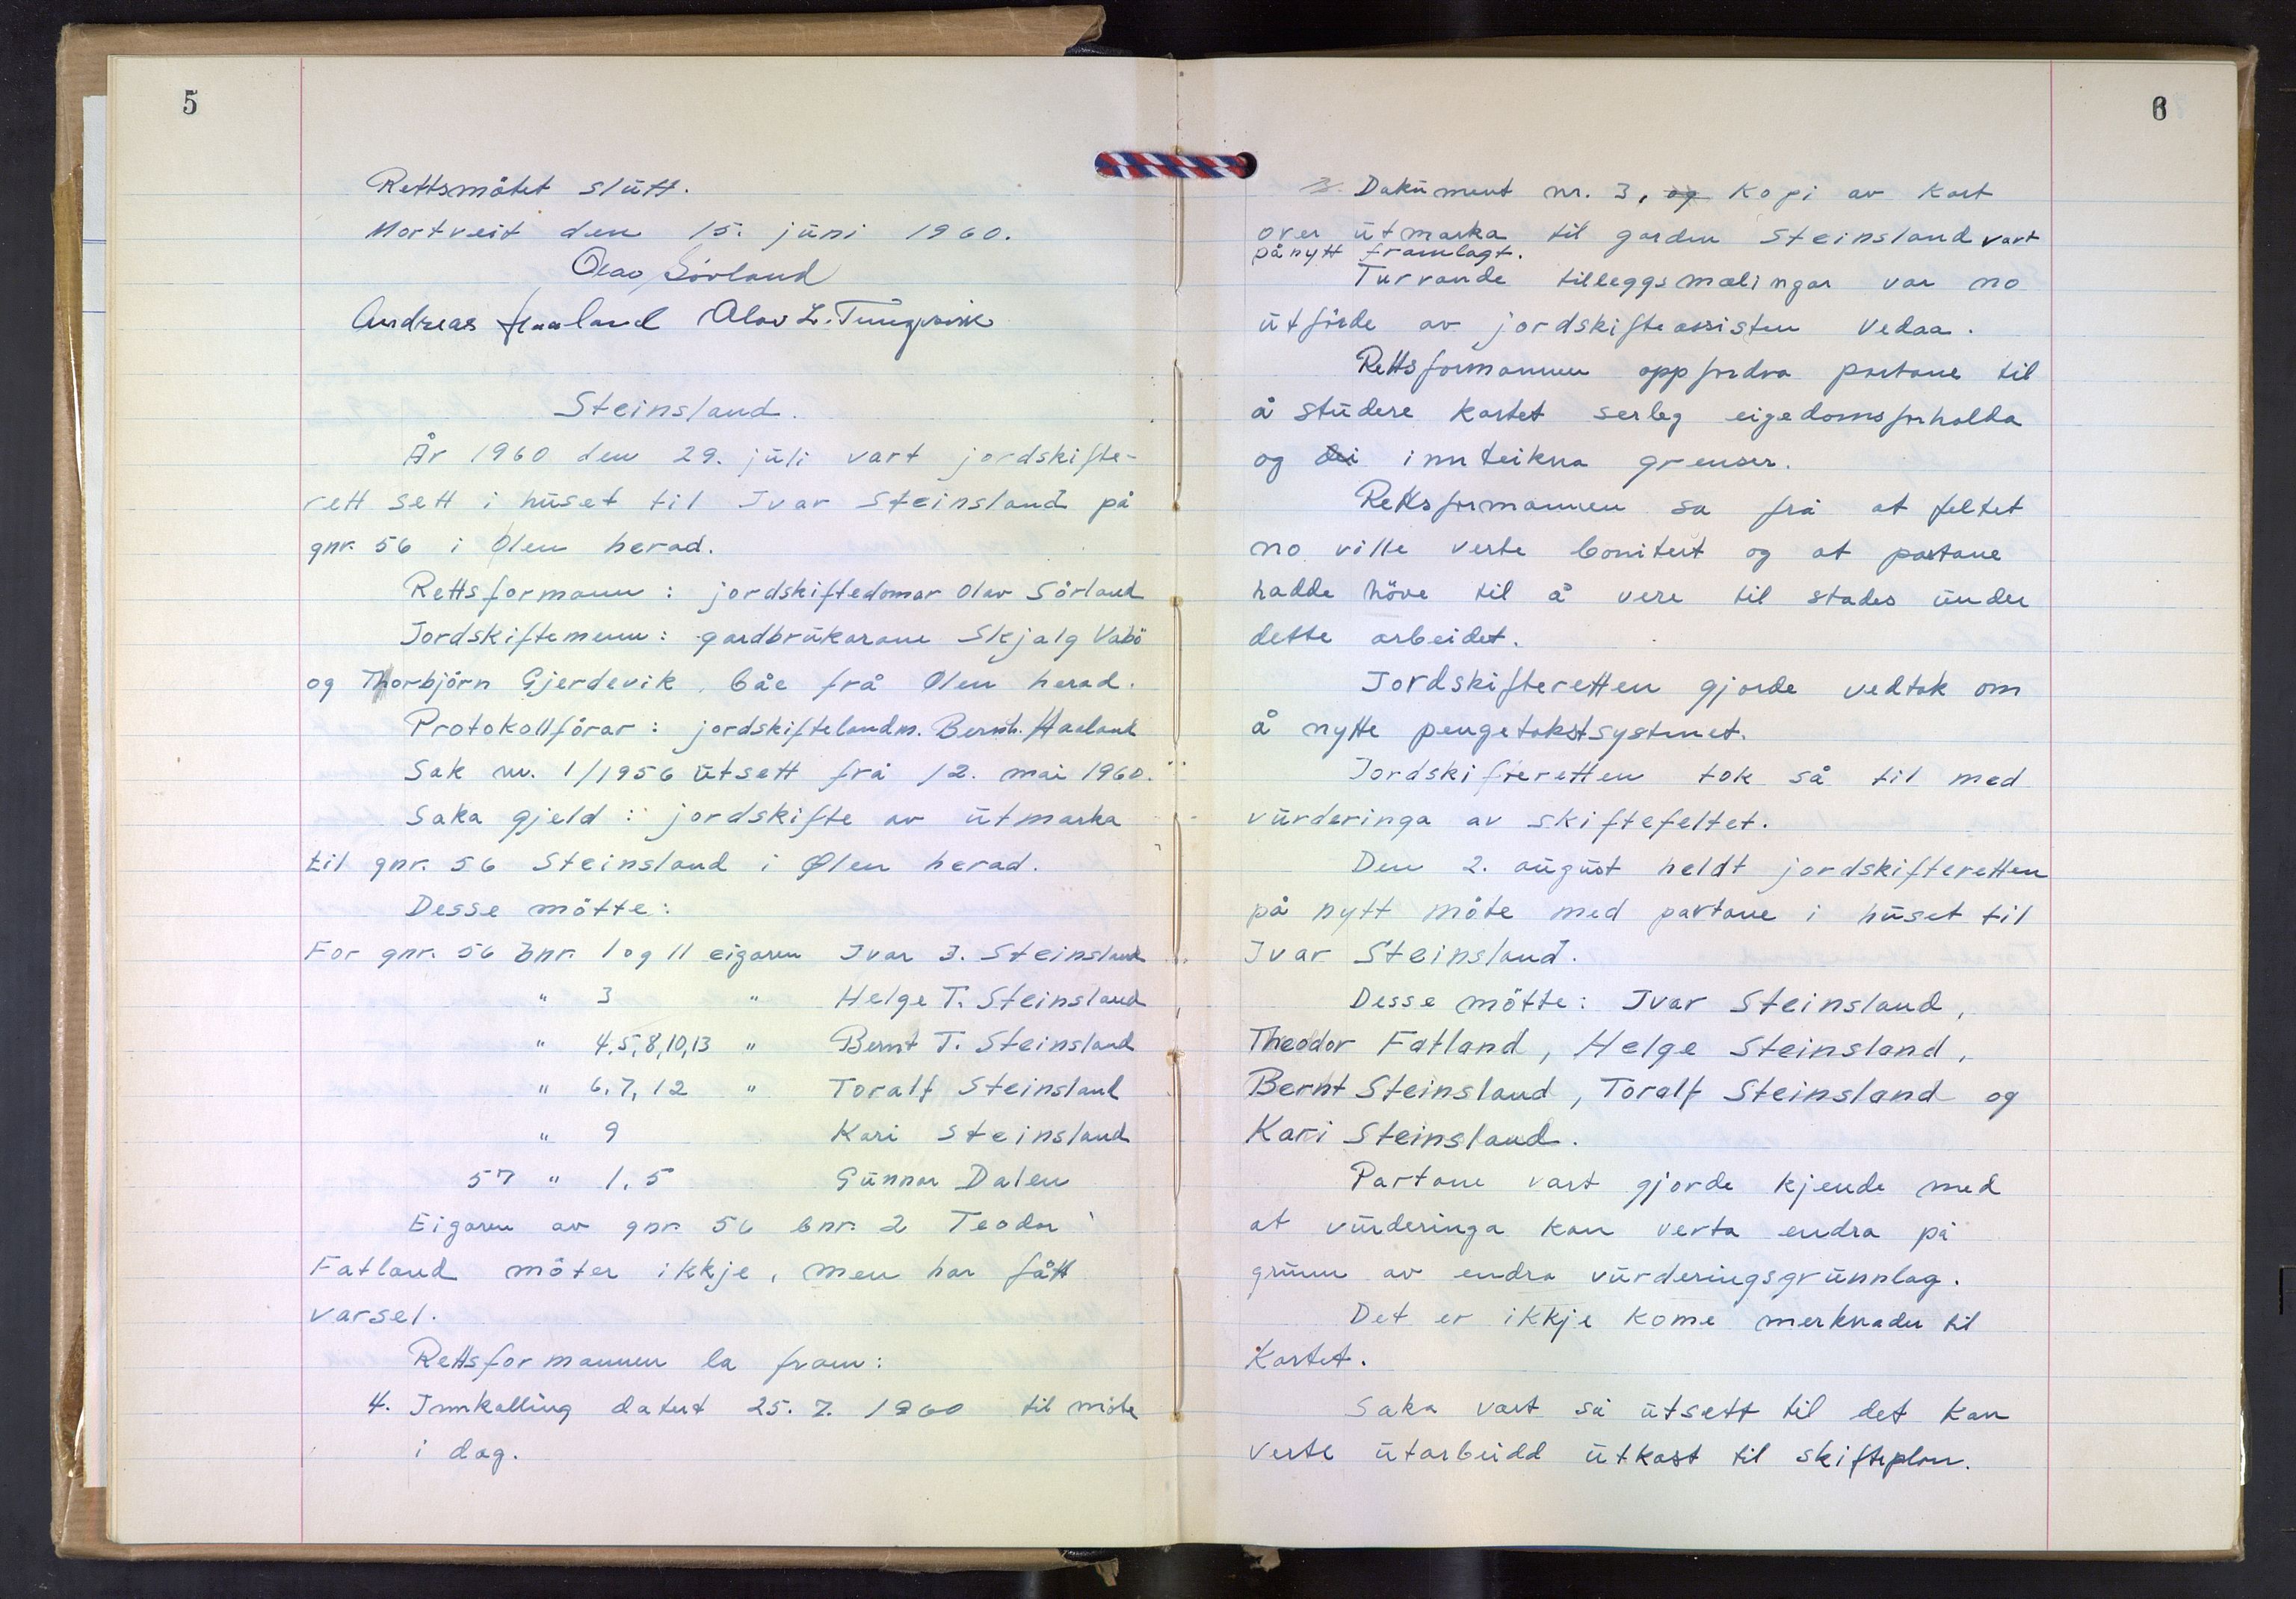 5
Rettsmötet slutt.
Mortveit den 15. juni 1960.
Olav Sörland
Andreas Haaland Olav L. Tungesvik
Steinsland.
År 1960 den 29. juli vart jordskifte-
rett sett i huset til Ivar Steinsland på
gnr. 56 i Ølen herad.
Rettsformann: jordskiftedomar Olav Sörland
Jordskiftemenn: gardbrukarane Skjalg Vabö
og Thorbjörn Gjerdevik, båe frå Ølen herad.
Protokollförar: jordskiftelandm. Bernh. Haaland
Sak nr. 1/1956 utsett frå 12. mai 1960.
Saka gjeld: jordskifte av utmarka
til gnr. 56 Steinsland i Ølen herad.
Desse mötte:
For gnr. 56 bnr. 1 og 11 eigaren Ivar I. Steinsland
" 3 " Helge T. Steinsland
" 4,5,8,10,13 " Bernt T. Steinsland
" 6,7,12 " Toralf Steinsland
" 9 Kari Steinsland
57 " 1,5 Gunnar Dalen
Eigaren av gnr. 56 bnr. 2 Teodor
Fatland möter ikkje, men har fått
varsel.
Rettsformannen la fram:
4. Innkalling datert 25.7.1960 til möte
i dag.
6
Dokument nr. 3, og kopi av kart
over utmarka til garden Steinsland vart
på nytt framlagt.
Turvande tilleggsmælingar var no
utförde av jordskifteassisten Vedaa.
Rettsformannen oppfordra partane til
å studere kartet serleg eigedomsforholda
og dei innteikna grenser.
Rettsformannen sa frå at feltet
no ville verte bonitert og at partane
hadde höve til å vere til stades under
dette arbeidet.
Jordskifteretten gjorde vedtak om
å nytte pengetakstsystemet.
Jordskifteretten tok så til med
vurderinga av skiftefeltet.
Den 2. august heldt jordskifteretten
på nytt möte med partane i huset til
Ivar Steinsland.
Desse mötte: Ivar Steinsland,
Theodor Fatland, Helge Steinsland,
Bernt Steinsland, Toralf Steinsland og
Kari Steinsland.
Partane vart gjorde kjende med
at vurderinga kan verta endra på
grunn av endra vurderingsgrunnlag.
Det er ikkje kome merknader til
kartet.
Saka vart så utsett til det kan
verte utarbeidd utkast til skifteplan.